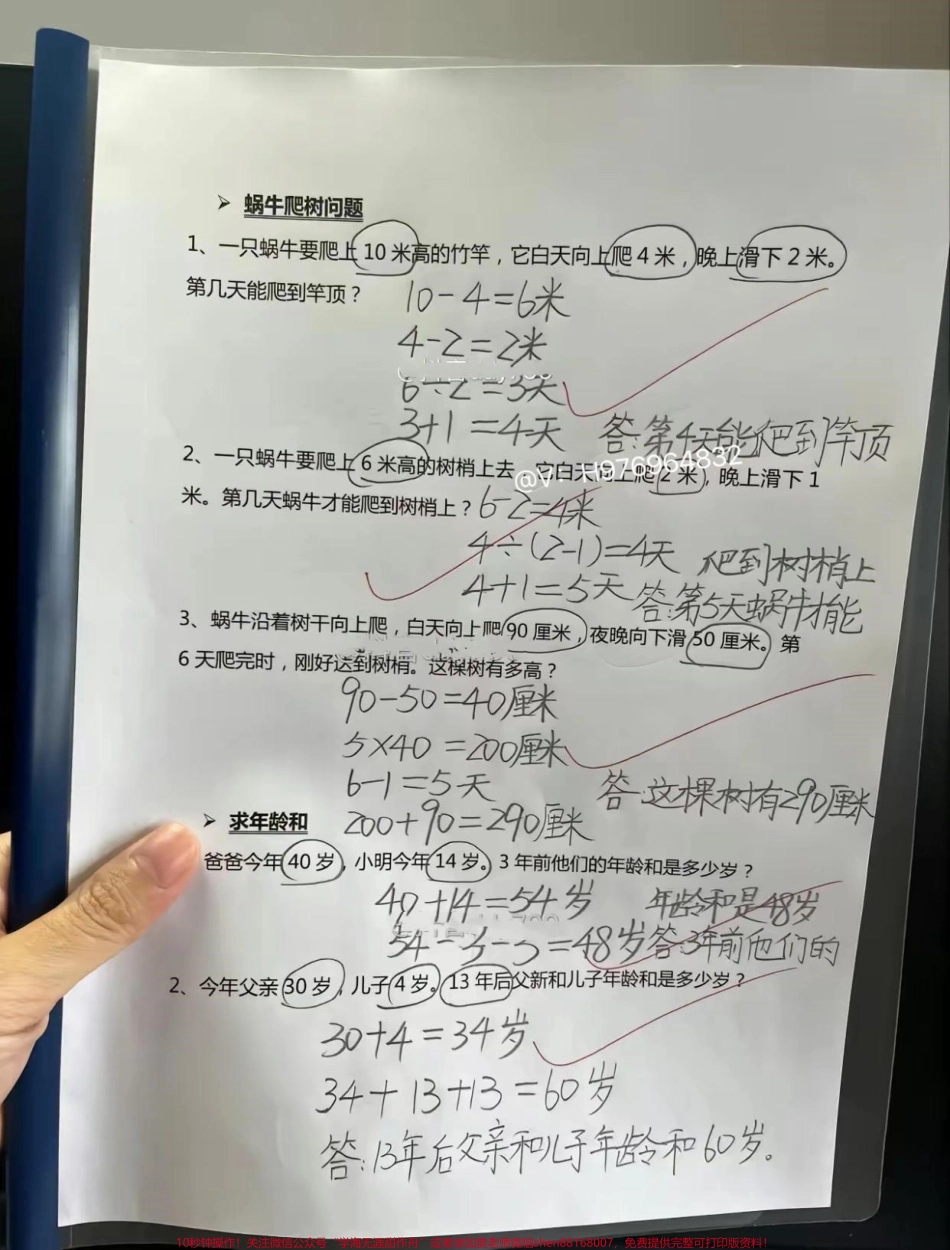 ➢ 蜗牛爬树问题
1、一只蜗牛要爬上 10 米高的竹竿，它白天向上爬 4 米，晚上滑下 2 米。
第几天能爬到竿顶？
10-4=6米
4-2=2米
6÷2=3天
3+1=4天 答:第4天能爬到竿顶
2、一只蜗牛要爬上 6 米高的树梢上去，它白天向上爬 2 米，晚上滑下 1
@V：H976964832
米。第几天蜗牛才能爬到树梢上？ 6-2=4米
4÷(2-1)=4天 爬到树梢上
4+1=5天 答:第5天蜗牛才能
3、蜗牛沿着树干向上爬，白天向上爬 90 厘米，夜晚向下滑 50 厘米。第
6 天爬完时，刚好达到树梢。这棵树有多高？
90-50=40厘米
5×40=200厘米
6-1=5天 答:这棵树有290厘米
200+90=290厘米
➢ 求年龄和
爸爸今年 40 岁，小明今年 14 岁。3 年前他们的年龄和是多少岁？
40+14=54岁 年龄和是48岁
54-3-3=48岁 答:3年前他们的
2、今年父亲 30 岁，儿子 4 岁。13 年后父新和儿子年龄和是多少岁？
30+4=34岁
34+13+13=60岁
答:13年后父亲和儿子年龄和60岁。
10秒钟操作！关注微信公众号
68007，免费提供完整可打印版资料！